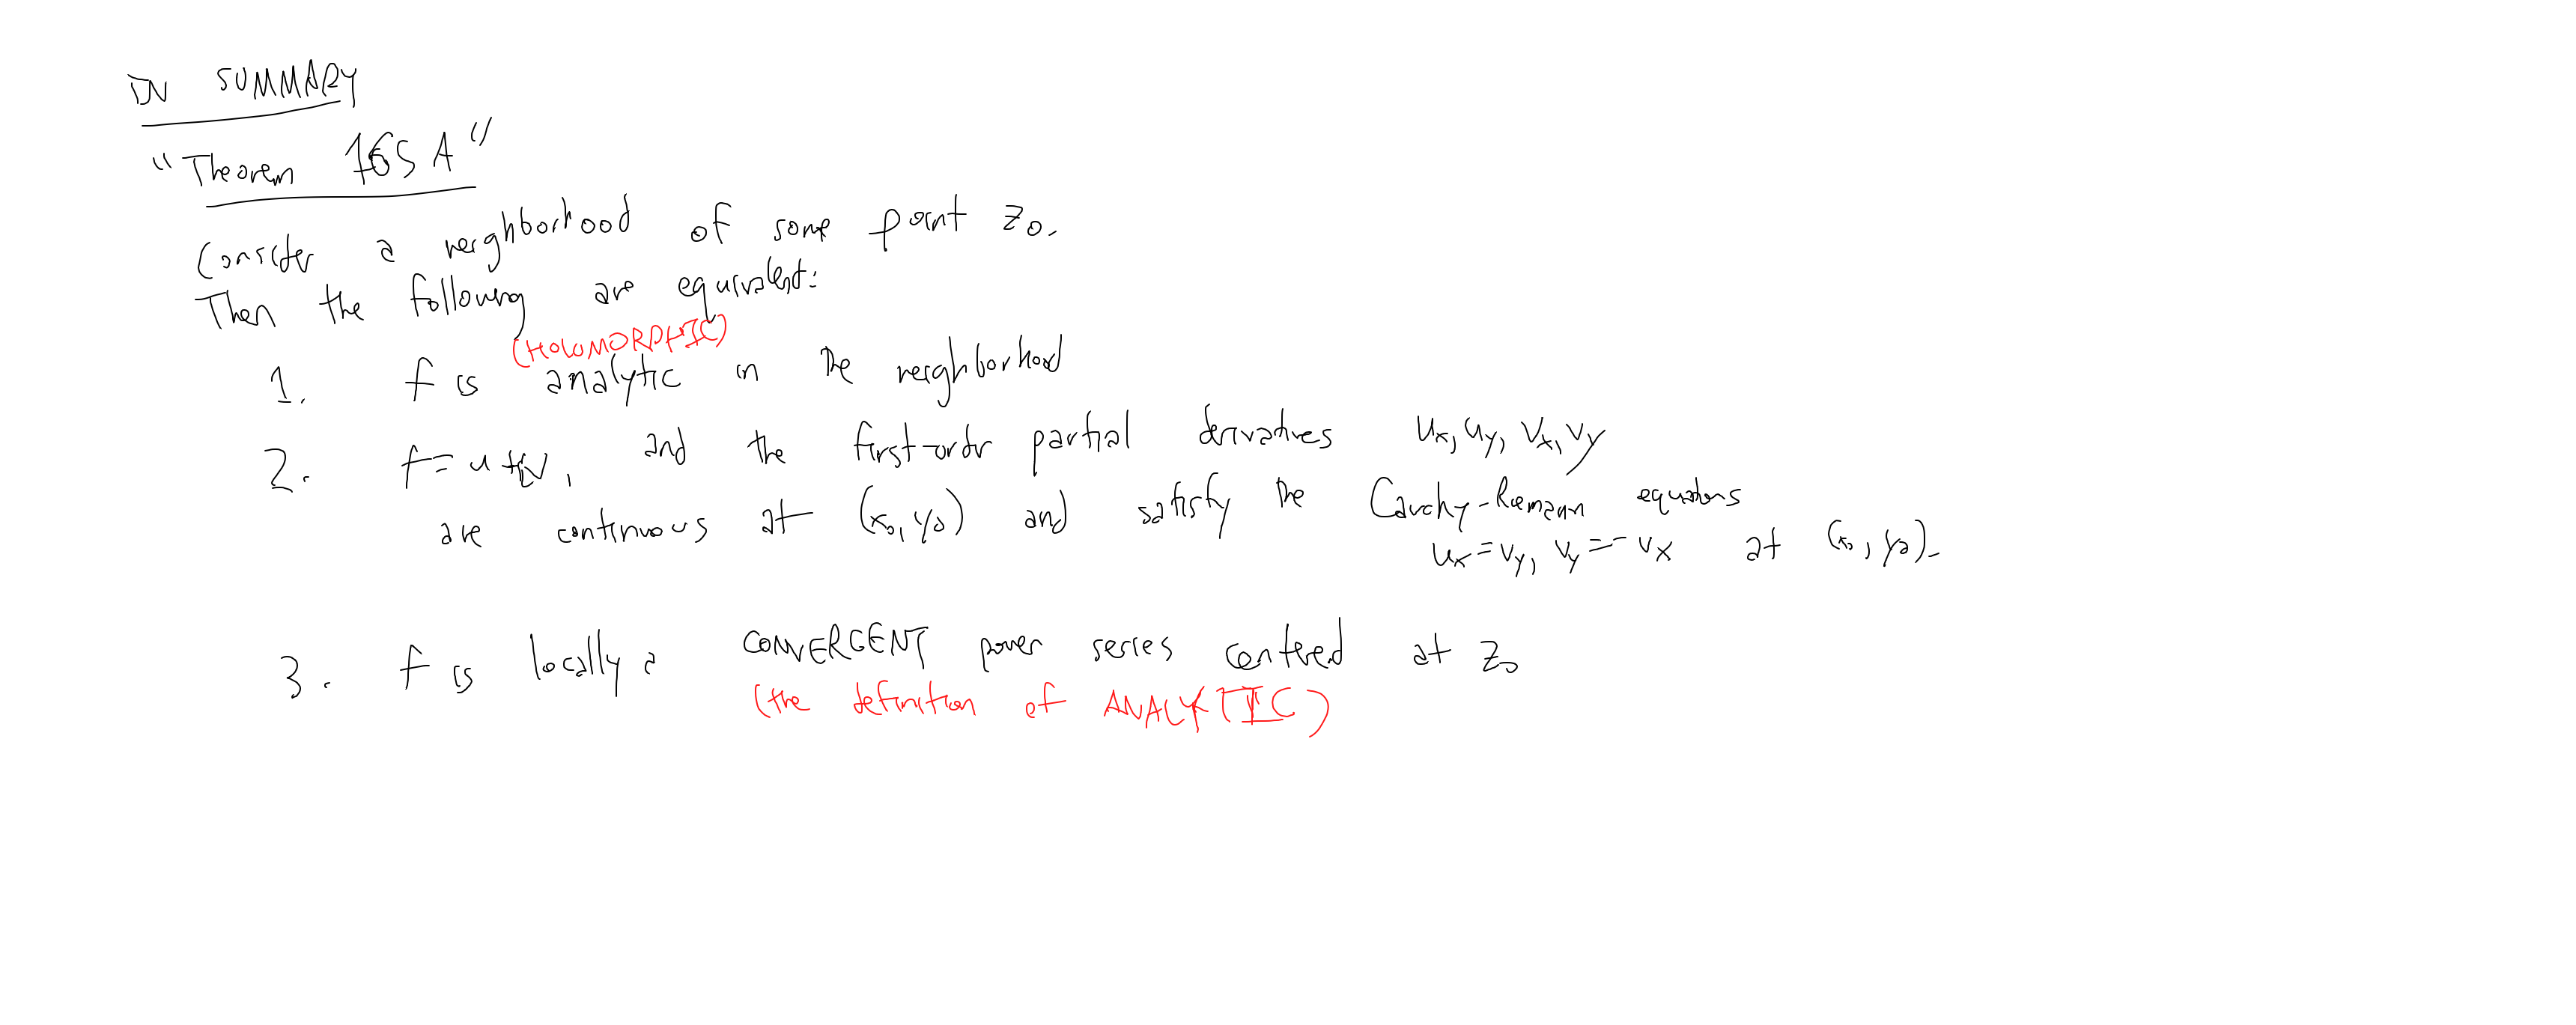 IN SUMMARY
"Theorem 165A"
Consider a neighborhood of some point z₀.
Then the following are equivalent:
(HOLOMORPHIC)
1. f is analytic in the neighborhood
2. f=u+iv, and the first-order partial derivatives uₓ, u_y, vₓ, v_y
are continuous at (x₀, y₀) and satisfy the Cauchy-Riemann equations
uₓ=v_y, v_y=-vₓ at (x₀, y₀).
3. f is locally a CONVERGENT power series centered at z₀
(the definition of ANALYTIC)